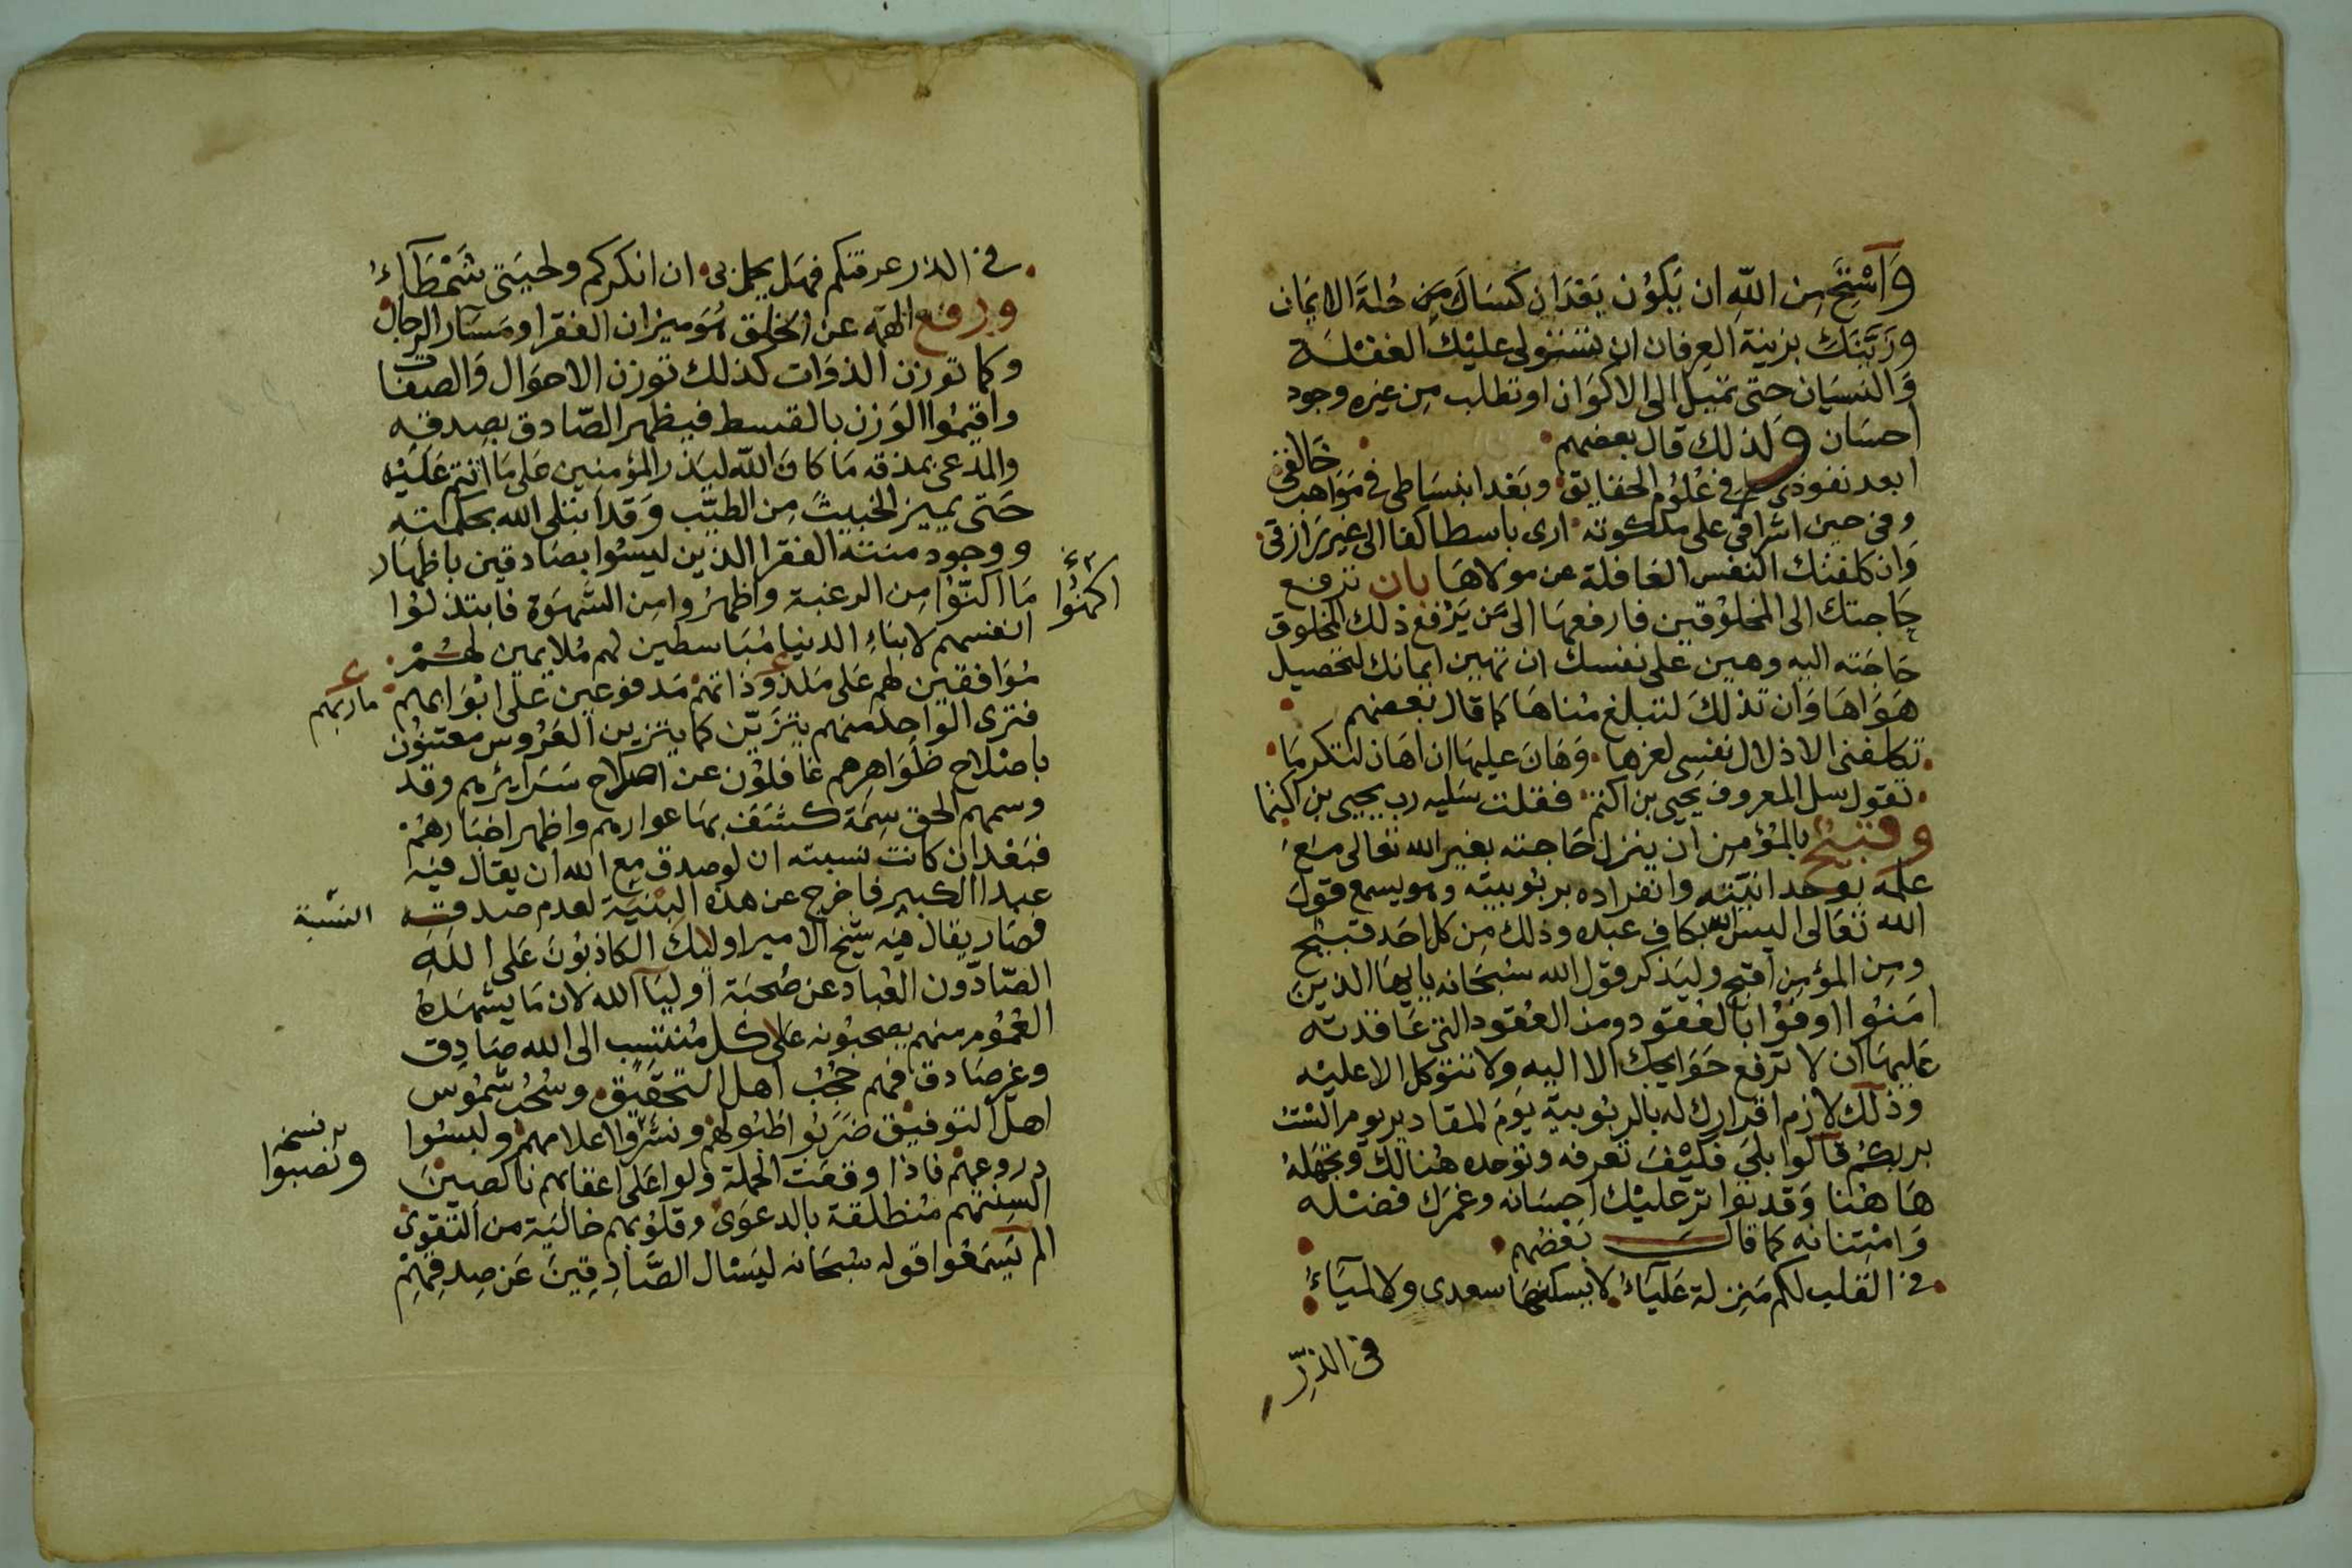 وَاَسْتَحِ مِن اللهِ ان يَكُون بَعْدَ ان كسَاكَ مِن حُلةَ الايمَان
وزَيَّنَكَ بزينة العِرفان ان تستولى عليْك الغفلة
وَالنسيَان حتى تميل الى الاكوَان او تطلب مِن غيره وجود
احسَان ولذلك قال بعضهم
ابعد نفوذى فى عُلوُم الحقايق وبَعْد انبسَاطى فى مَوَاهب خَالقى
وفى حين اشراقى على ملكوته ارى باسطا كفا الى غير رَازقى
وَان كلفتك النفس الغافلة عن مولاهَا بان ترفع
حَاجتك الى المخلوقين فارفعهَا الى مَن يَرْفع ذلك المخلوق
حَاجَته اليه وهين على نفسك ان تهين ايمانك لتحصيل
هَوَاهَا وَان تذلكَ لتبلغ مُناهَا كما قال بعضهم
تكلفنى الاذلال نفسى لعزها وَهَانَ عليهَا ان اهَان لتكرمَا
تقول سل المعروف يحيى بن اكثم فقلت سَليه رب يحيى بن اكثما
وقبيْحٌ بالمُؤمن ان ينزل حَاجته بغير الله تعَالى مَعَ
علمه بوحدانيَّته وانفراده بربُوبيته وهو يسمع قولَ
الله تعَالى اليسَ الله بكاف عبده وذلك مِن كل احَد قبيْح
ومِن المؤمِن اقبح وليَذكر قول الله سُبحَانه يا ايهَا الذينَ
امَنُوا اوفُوْا بالعُقود ومن العُقود التى عَاقدته
عَليهَا ان لا ترفع حَوَايجك الا اليهِ ولا تتوكل الا عليْه
وذلك لازم اقرارك له بالربُوبية يَوَمَ المقادير يوم الستُ
بربكُم قالوا بلىَ فكيْفَ تعرفه وتوحده هُنالك وَتجهَلهُ
هَا هُنا وَقد تواتر عليْك احسَانه وغمَرك فضله
وَامْتنانه كما قالَ بَعْضُهم
فى القلب لكم مَنزلة عَليَاءُ لا يسكنهَا سعدى ولا لميَاءُ
فى الذرِّ
فى الذر عرفتكم فهَل يجمل بى ان انكركم ولحيَتى شَمْطَآءُ
ورفع الهمّه عن الخلق هُوَ ميزان الفقرا ومَسَار الرجال
وكما توزن الذوَات كذلك توزن الاحوَال وَالصفات
واقيمُوا الوَزن بالقسط فيظهر الصّادق بصِدقه
والمدعى بمذقه مَا كانَ الله ليَذر المؤمنين عَلى مَا انتم عَليْه
حَتى يميز الخبيثَ مِن الطيّب وَقد ابتلى الله بحكمته
ووجود منته الفقرا الذين ليسُوا بصَادقين باظهَار
مَا اكنّوا مِن الرغبة واظهرُوا مِن الشهوَة فابتذلوُا
اكمنُوا
انفسهم لابنَاءِ الدنيا مُبَاسطين لهم مُلايمين لهُمْ
مُوَافقين لهم عَلى مَلذوذاتهم مَدفوعين عَلى ابْوَابهم
ماربهم
فترى الوَاحد منهم يتزَيّن كما يتزين العَرُوس معتنوُن
باصْلاح ظَوَاهِرهم غَافلوُن عن اصلاح سَرَآئرهم وقد
وسمهم الحق سِمَة كشَفَ بهَا عوارهم واظهر اخبَارهُمْ
فبَعْد ان كانت نسبته ان لو صدق مع الله ان يقال فيْه
عبد الكبير فاخرج عن هذه البنيَة لعدم صدقه
النسْبة
فصَار يقال فيْه شيْخ الامير اوليك الكاذبُونَ عَلى اللهِ
الصّادّون العُباد عن صُحبَة اوليَآ الله لان مَا يشهَدهُ
العُمُوم منهم يصحبُونه عَلى كل مُنتسِب الى الله صَادِق
وغير صَادق فهم حُجُبُ اهل التحقيْق وسُحُب شمُوس
اهل التوفيق ضرَبُوا طبُولهم ونشَرُوا اعلامهم ولبسُوا
بر نسخه
ونصبوا
دروعهم فاذا وقعَت الحملة ولوا عَلى اعقابهم ناكصِيْنَ
السِنتهم مُنطلقة بالدعوَى وقلوُبهم خاليَة من التقوى
الم يَسمَعُوا قوله سُبحَانه ليَسْال الصَّادِقِينَ عَن صِدقِهِمْ